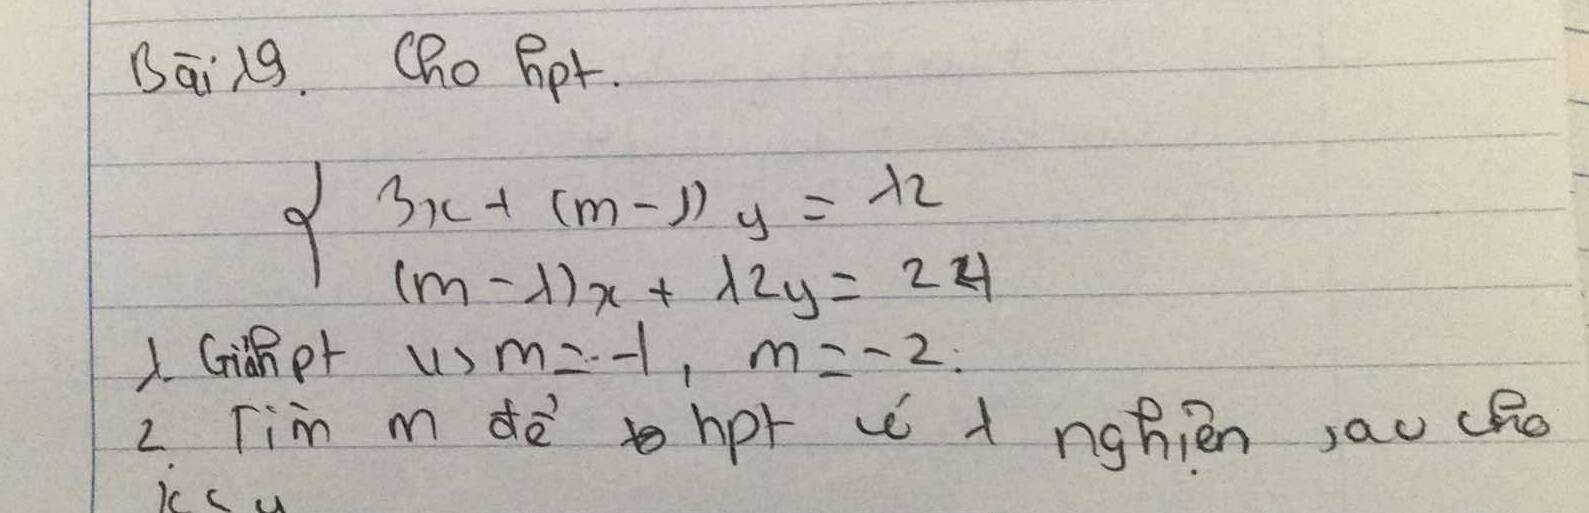 Bài 19. Cho hpt.
3x + (m - 1) y = 12
(m - 1)x + 12y = 24
1. Giải hpt vs m = -1, m = -2.
2. Tìm m để hpt có 1 nghiệm sao cho
x < y